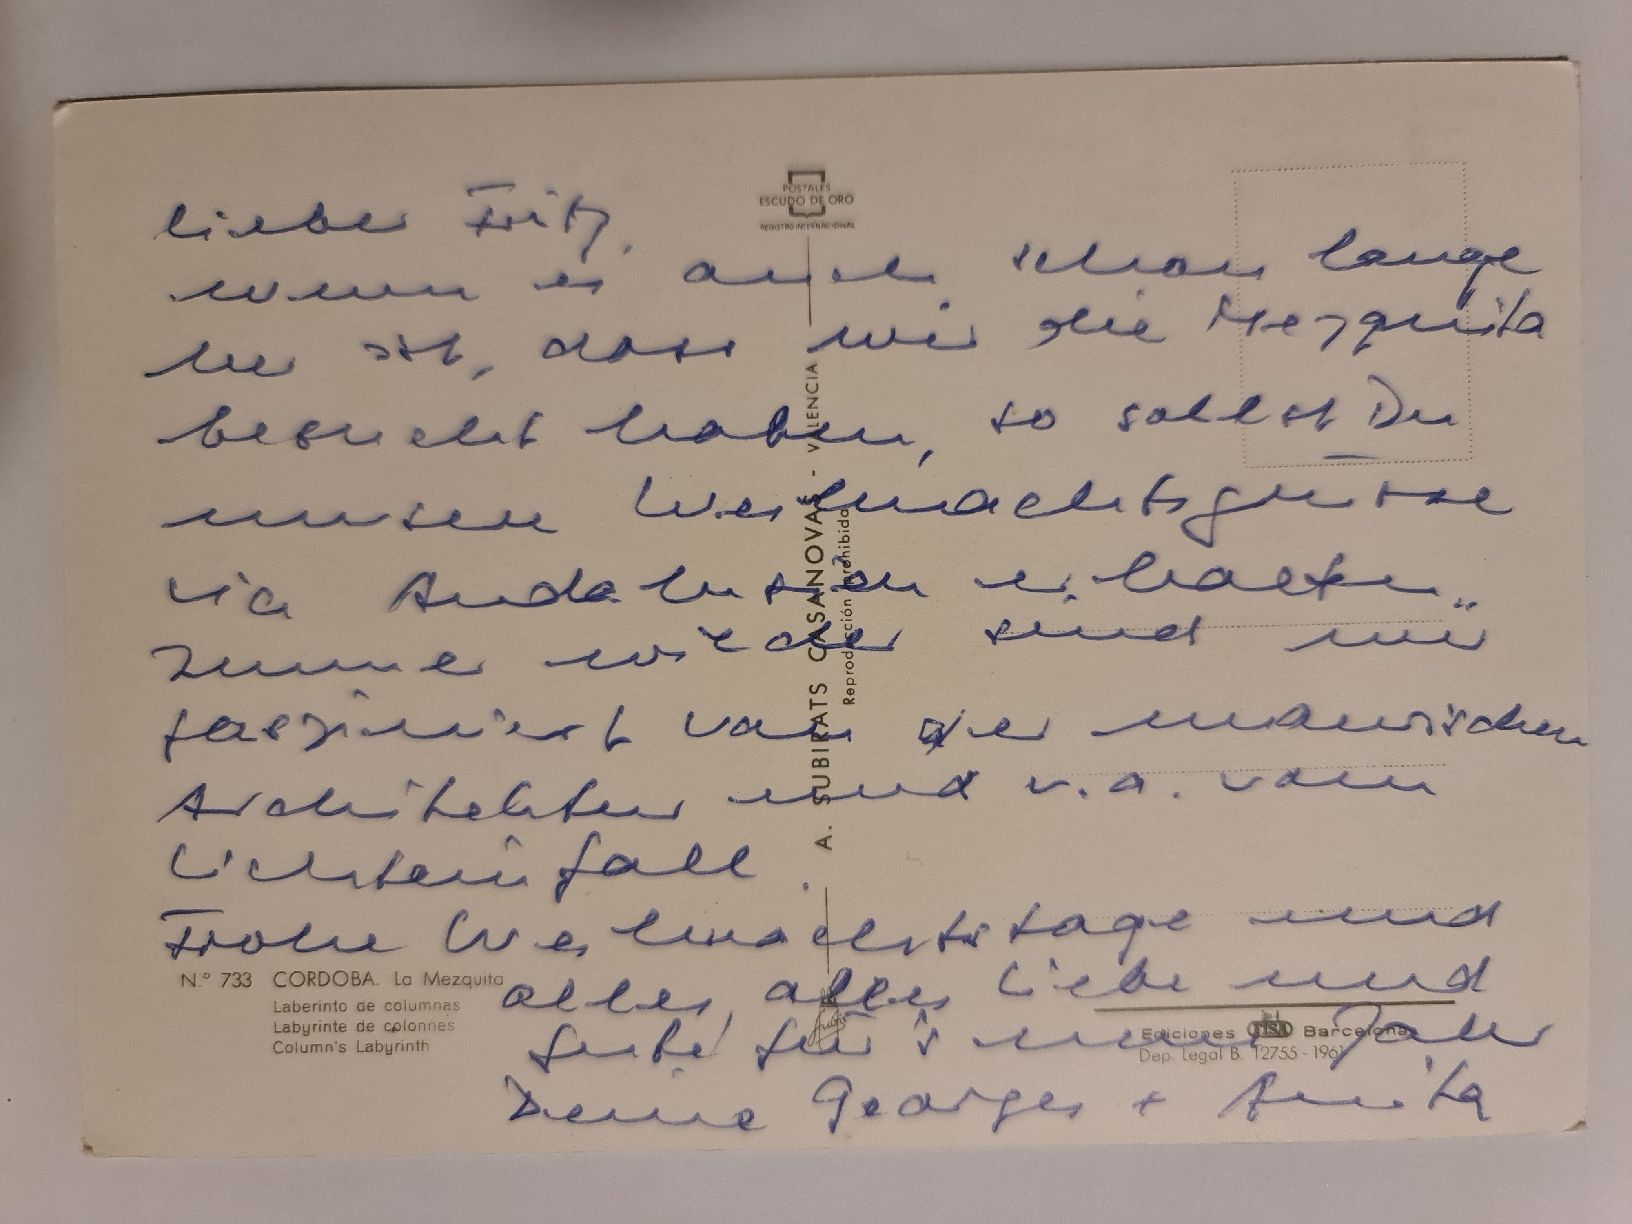 lieber Fritz,
wenn es auch schon lange
her ist, dass wir die Mezquita
besucht haben, so sollst Du
unsere Weihnachtsgrüsse
via Andalusien erhalten.
Immer wieder sind wir
fasziniert von der maurischen
Architektur und v.a. vom
Lichteinfall.
Frohe Weihnachtstage und
alles, alles Liebe und
Gute für's neue Jahr
Deine Georges + Anita
POSTALES
ESCUDO DE ORO
REGISTRO INTERNACIONAL
A. SUBIRATS CASANOVAS - VALENCIA
Reproducción prohibida
N.° 733 CORDOBA. La Mezquita
Laberinto de columnas
Labyrinte de colonnes
Column's Labyrinth
Ediciones Barcelona
Dep. Legal B. 12755 - 196